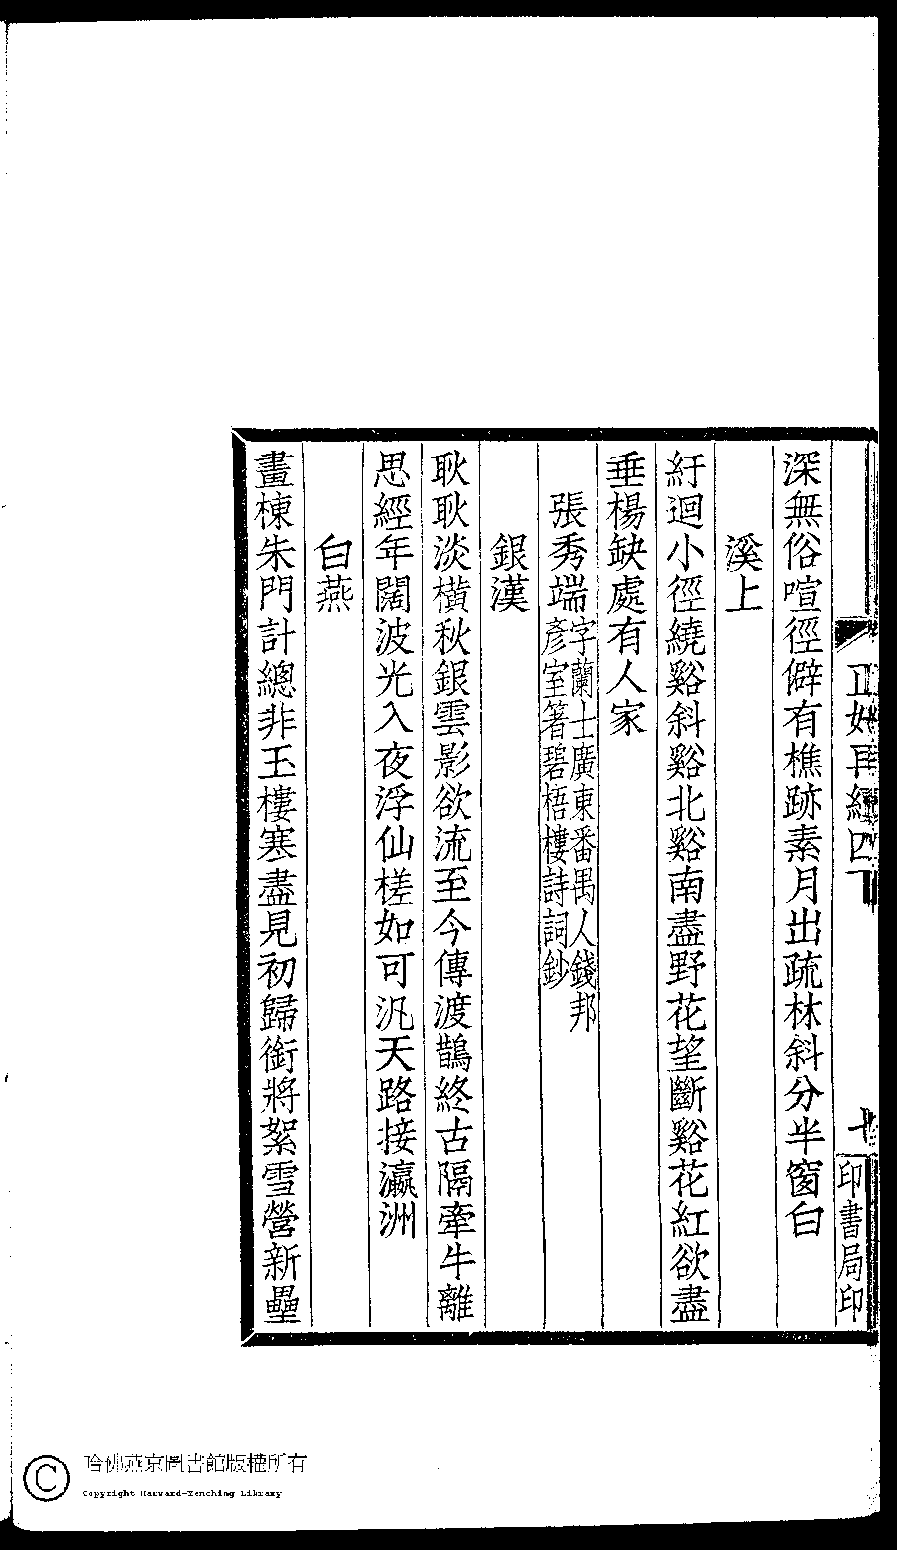 深無俗喧徑僻有樵跡素月出疏林斜分半窗白
溪上
紆迴小徑繞谿斜谿北谿南盡野花望斷谿花紅欲盡
垂楊缺處有人家
張秀端字蘭士廣東番禺人錢邦
彥室箸碧梧樓詩詞鈔
銀漢
耿耿淡橫秋銀雲影欲流至今傳渡鵲終古隔牽牛離
思經年闊波光入夜浮仙槎如可汎天路接瀛洲
白燕
畫棟朱門計總非玉樓寒盡見初歸銜將絮雪營新壘
印書局印
哈佛燕京圖書館版權所有
Copyright Harvard-Yenching Library